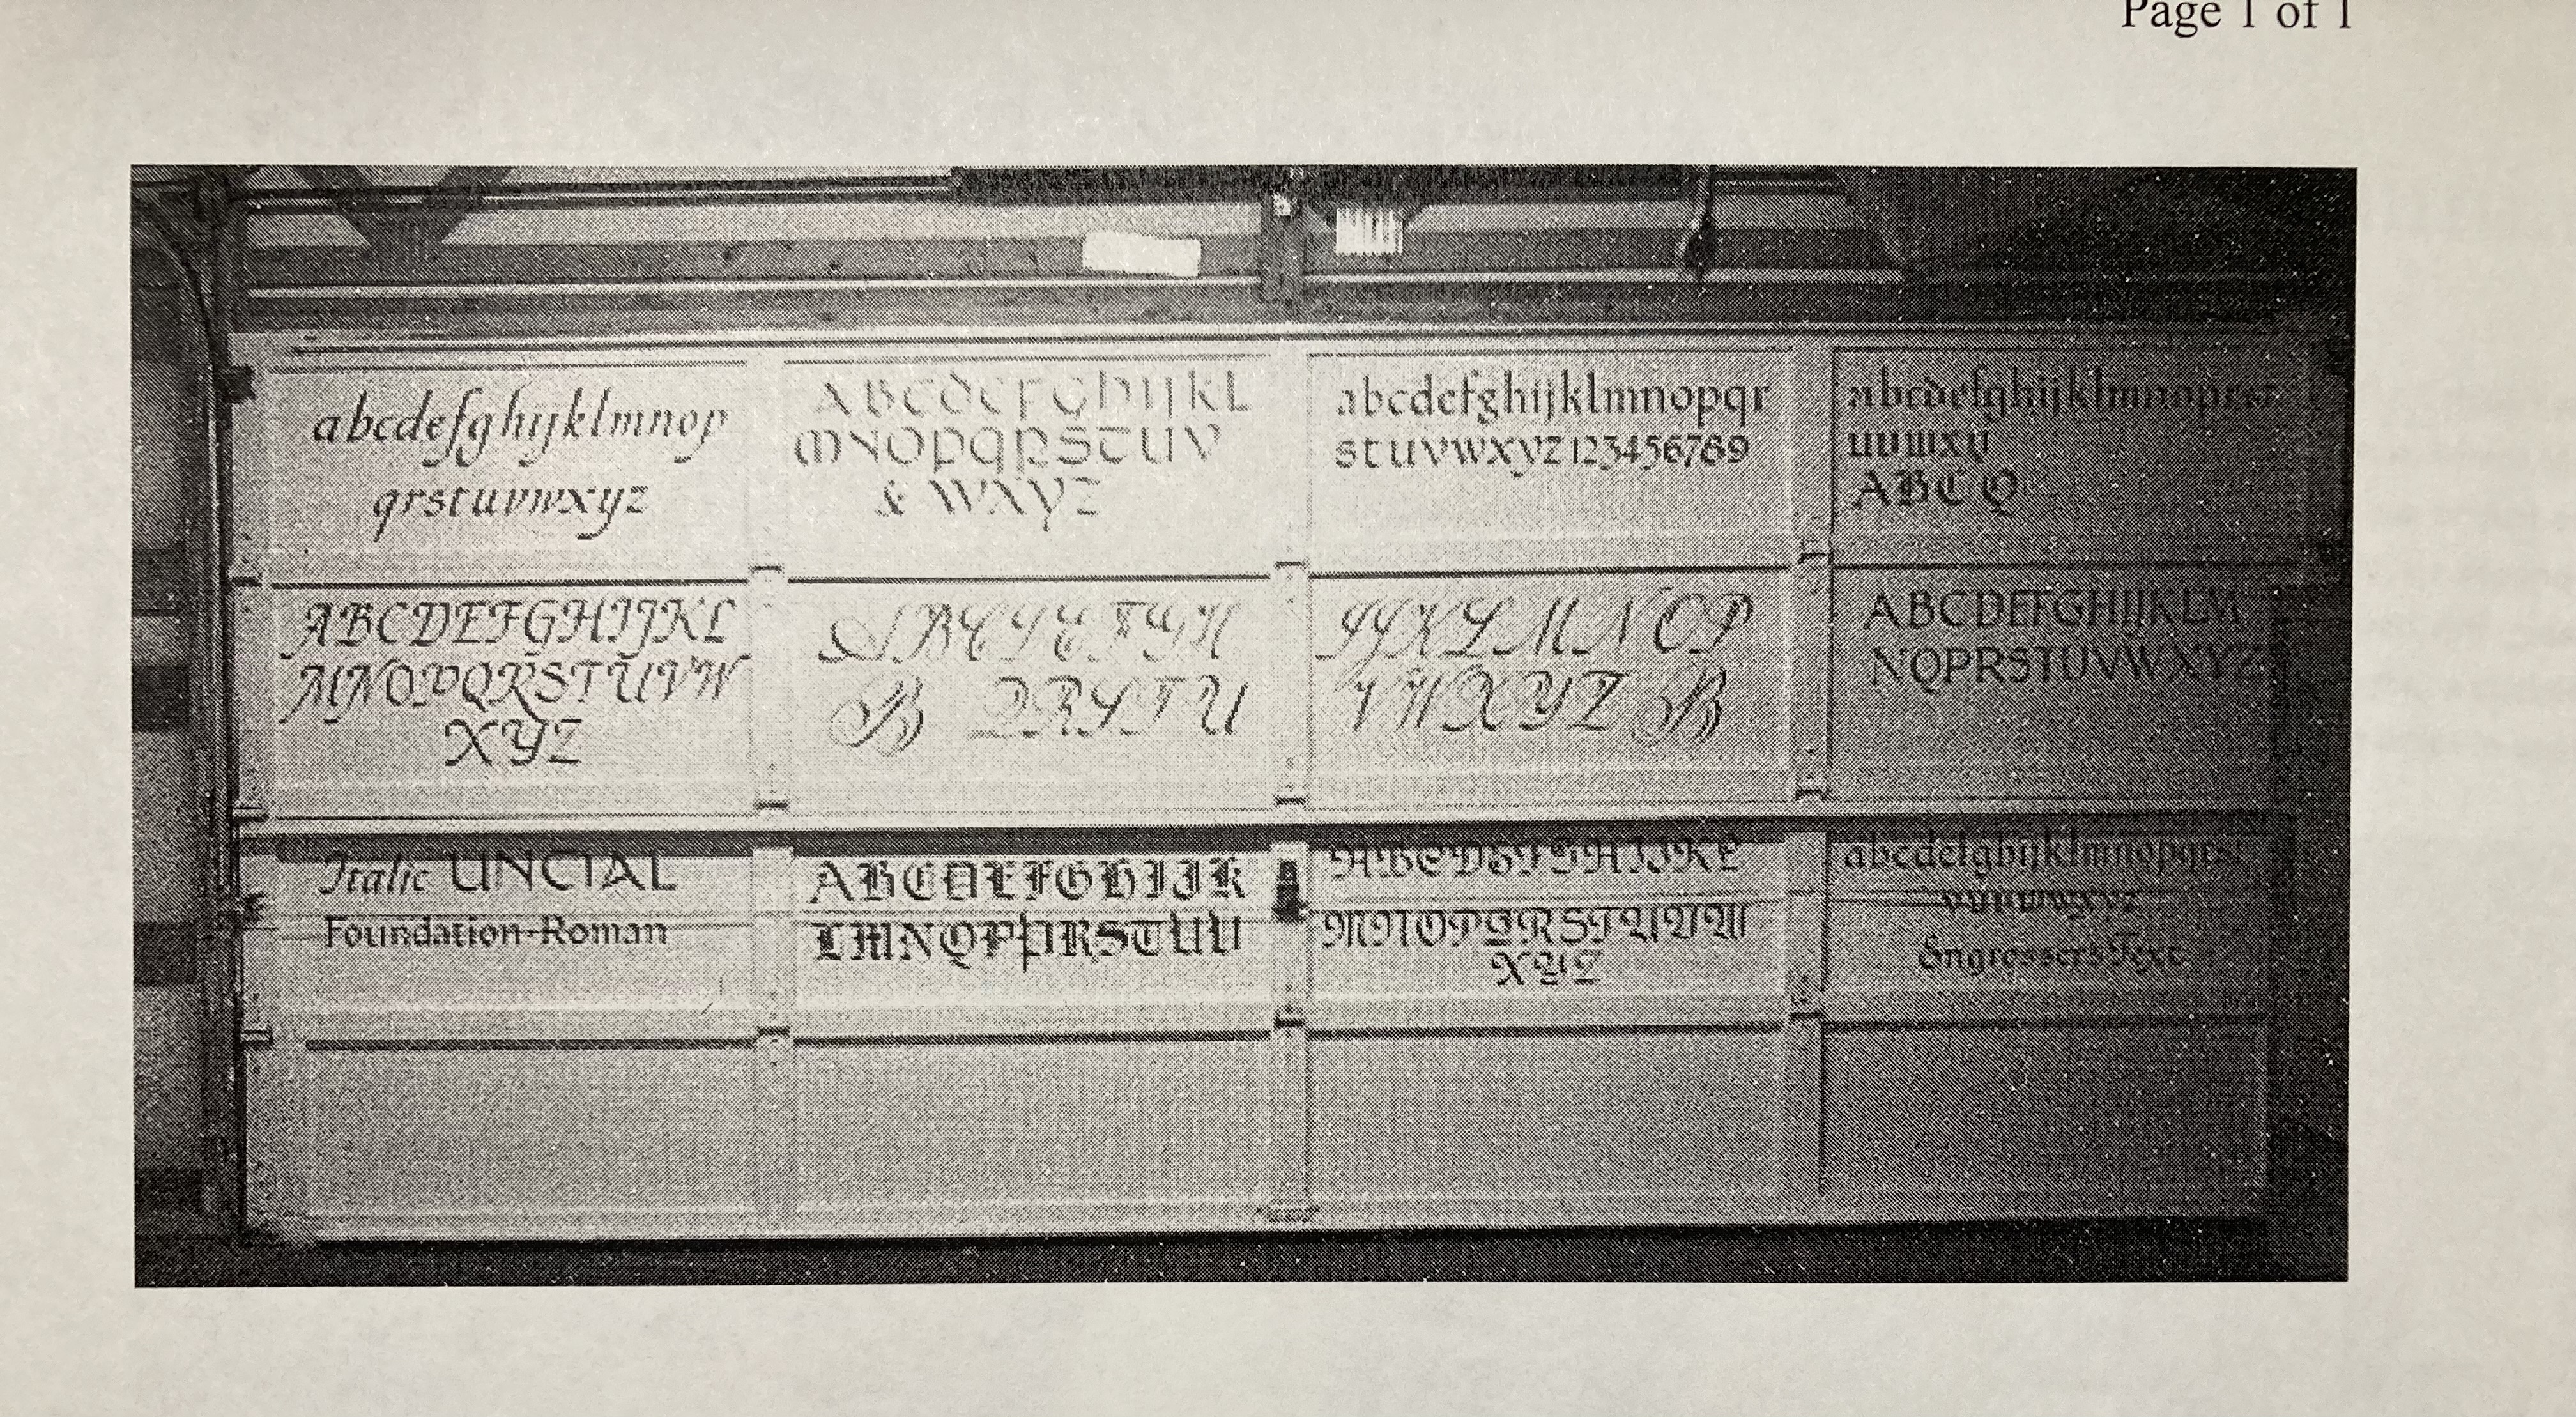 Page 1 of 1
abcdefghijklmnop
qrstuvwxyz
ABCDEFGHIJKL
MNOPQRSTUVW
XYZ
Italic UNCIAL
Foundation-Roman
ABCDEFGHIJKL
MNOPQRSTUV
& WXYZ
ABCDEFGH
B QRSTU
ABCDEFGHIJK
LMNOPQRSTUV
abcdefghijklmnopqr
stuvwxyz123456789
IJKLMNOP
VWXYZ B
ABCDEFGHIJKL
MNOPQRSTUVW
XYZ
ABC Q
ABCDEFGHIJKLM
NOPRSTUVWXYZ
abcdefghijklmnopqrst
Engrossers Text